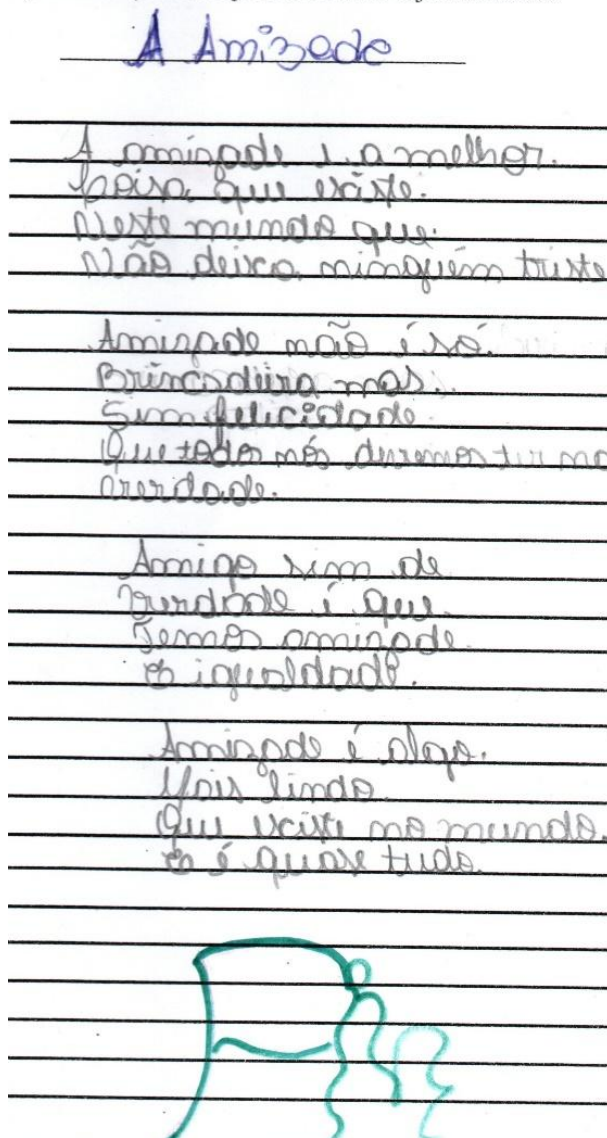 A Amizade
A amizade é a melhor.
Coisa que existe.
Neste mundo que.
Não deixa ninguém triste
Amizade não é só.
Brincadeira mas.
Sim felicidade.
Que todos nós devemos ter na
verdade.
Amigo sim de
Verdade é que
Temos amizade.
E igualdade.
Amizade é algo.
Mais lindo.
Que existe no mundo.
E é quase tudo.